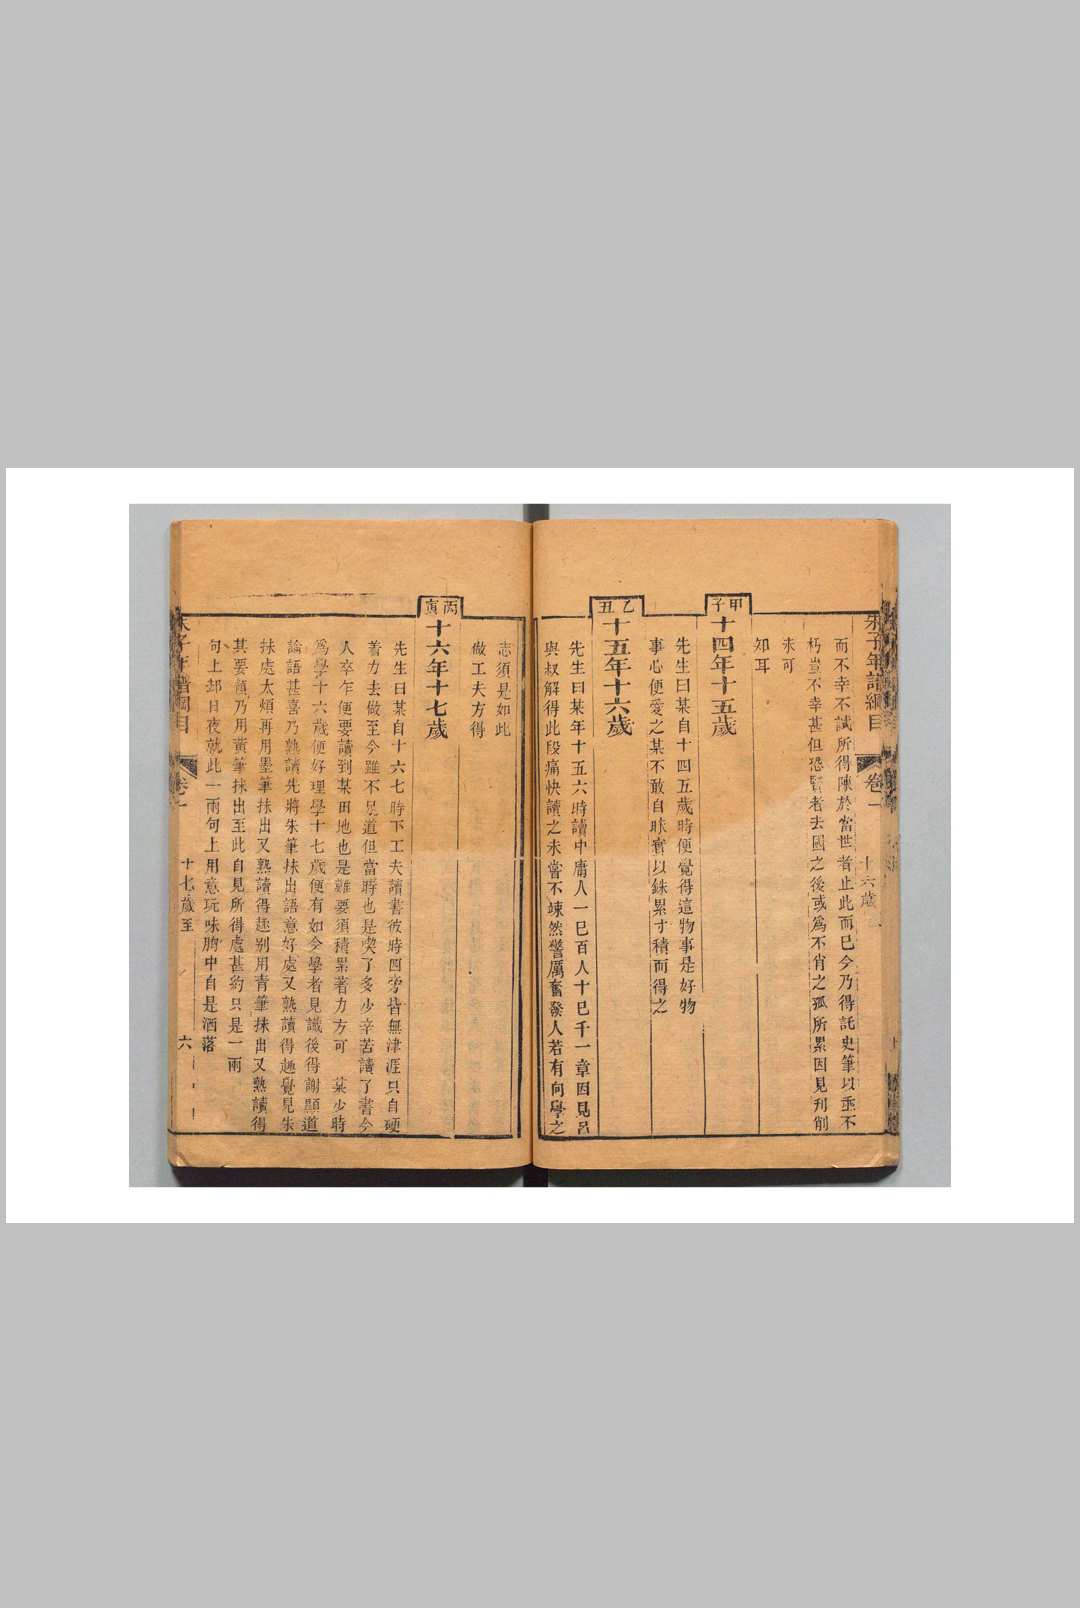 朱子年譜綱目
卷一
十六歲
而不幸不試所得陳於當世者止此而已今乃得託史筆以垂不
朽豈不幸甚但恐賢者去國之後或爲不肖之孤所累因見刋削
未可
知耳
甲子
十四年十五歲
先生曰某自十四五歲時便覺得這物事是好物
事心便愛之某不敢自昧實以銖累寸積而得之
乙丑
十五年十六歲
先生曰某年十五六時讀中庸人一已百人十已千一章因見呂
與叔解得此段痛快讀之未嘗不竦然警厲奮發人若有向學之
志須是如此
做工夫方得
丙寅
十六年十七歲
先生曰某自十六七時下工夫讀書彼時四旁皆無津涯只自硬
着力去做至今雖不足道但當時也是喫了多少辛苦讀了書今
人卒乍便要讀到某田地也是難要須積累著力方可 某少時
爲學十六歲便好理學十七歲便有如今學者見識後得謝顯道
論語甚喜乃熟讀先將朱筆抹出語意好處又熟讀得趣覺見朱
抹處太煩再用墨筆抹出又熟讀得趣别用青筆抹出又熟讀得
其要領乃用黃筆抹出至此自見所得處甚約只是一兩
句上却日夜就此一兩句上用意玩味胷中自是洒落
朱子年譜綱目
卷一
十七歲至
六